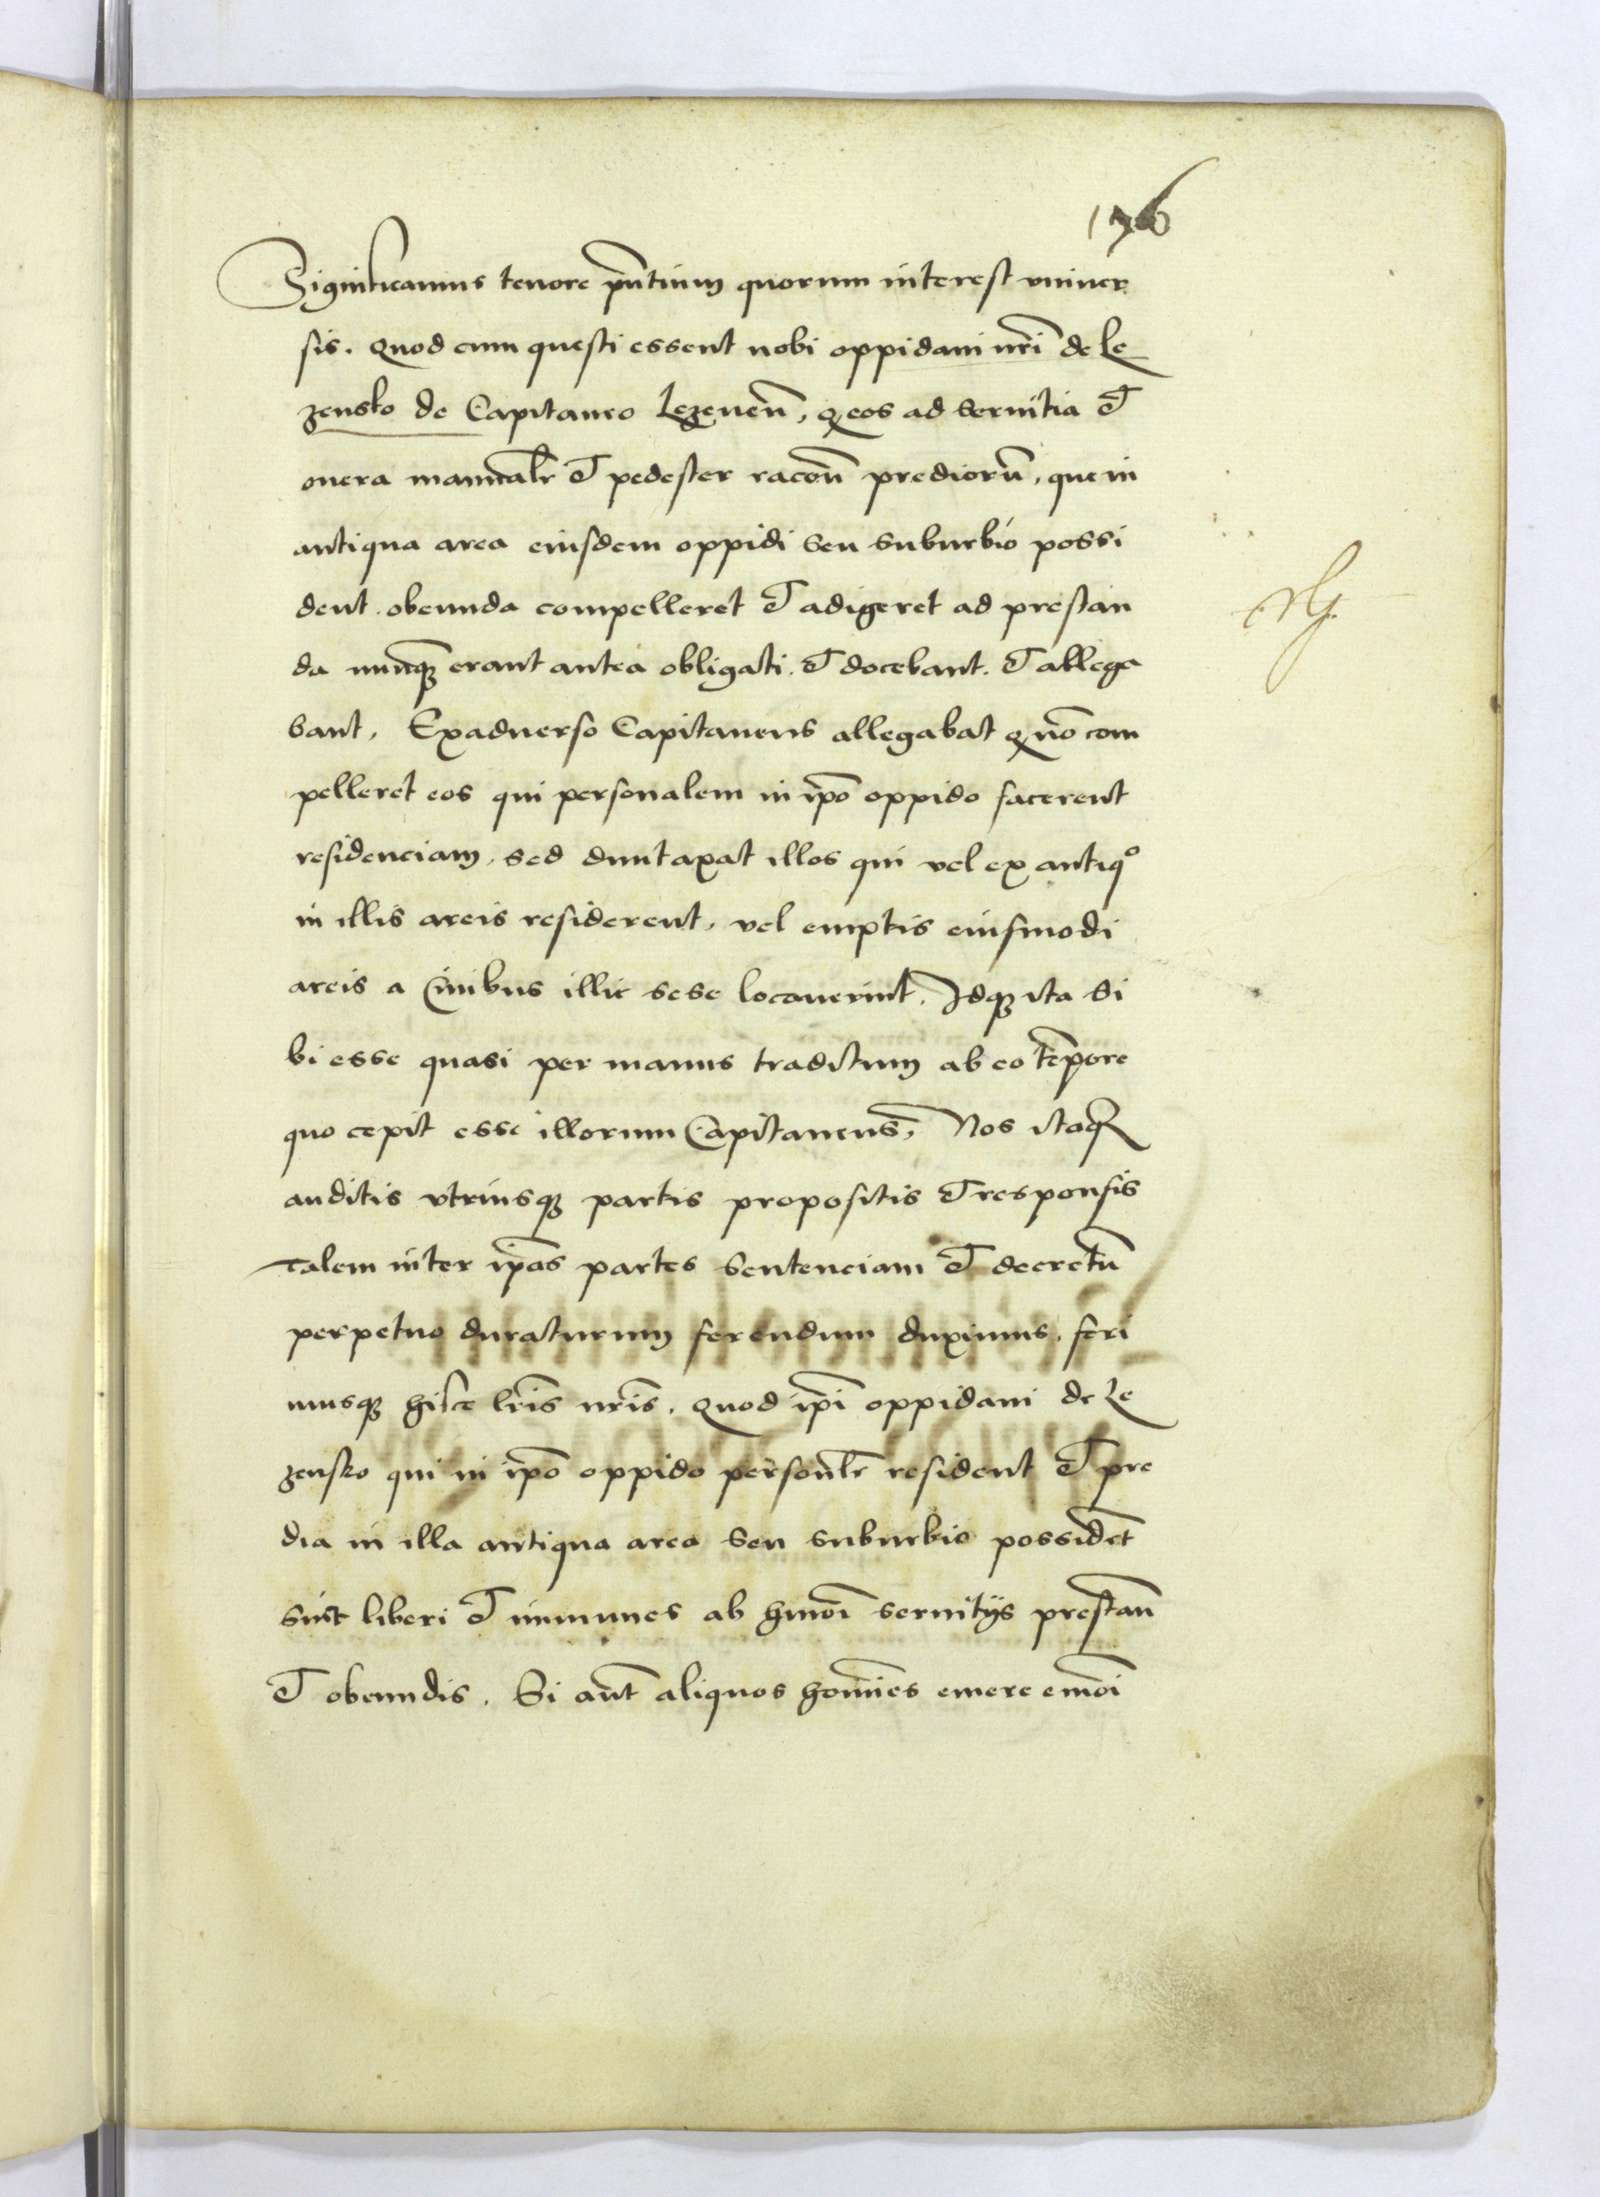 176
Significamus tenore pñtium quorum interest vniuer
sis. Quod cum questi essent nobi oppidani nri̅ de Le
zensko de Capitaneo Lezeneñ, q eos ad seruitia et
onera manualr̅ et pedester racoñ prediorũ, que in
antiqua area eiusdem oppidi seu suburbio possi
dent. obeunda compelleret et adigeret ad prestan
da nunq̃ꝫ erant antea obligati. et docebant. et allega
bant, Exaduerso Capitaneus allegabat q nõ com
pelleret eos qui personalem in ip̅o oppido facerent
residenciam, sed duntaxat illos qui vel ex antiqº
in illis areis residerent, vel emptis eiusmodi
areis a ciuibus illic sese locauerint. Idqꝫ ita si
bi esse quasi per manus traditum ab eo tẽpore
quo cepit esse illorum Capitaneus, Nos itaqꝫ
auditis vtriusqꝫ partis propositis et responsis
Talem inter ip̅as partes sentenciam et decretũ
perpetuo duraturum ferendum duximus, feri
musqꝫ hisce lr̅is nr̅is. Quod ip̅i oppidani de Le
zensko qui in ip̅o oppido personlr̅ resident et pre
dia in illa antiqua area seu suburbio possidẽt
sint liberi et immunes ab hmõi seruitijs prestañ
et obeundis. Si aut̅ aliquos homĩes emere emõi